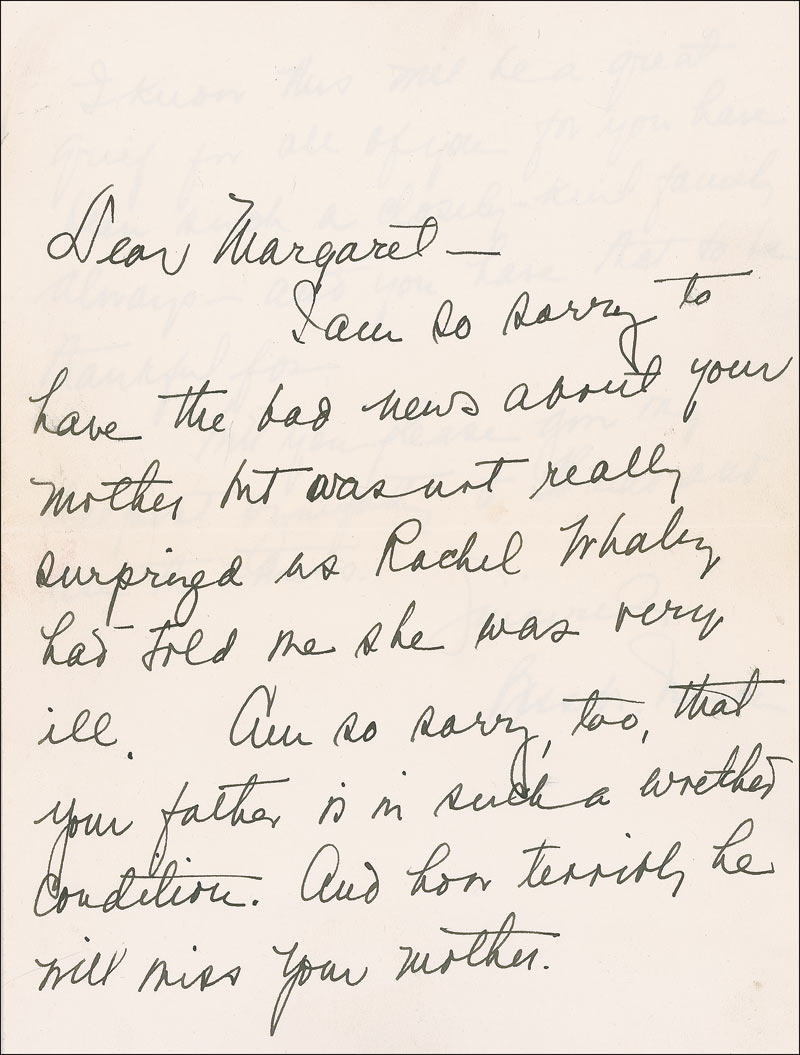 Dear Margaret —
I am so sorry to
have the bad news about your
mother but was not really
surprized as Rachel Whaley
had told me she was very
ill. Am so sorry, too, that
your father is in such a wretched
condition. And how terribly he
will miss your mother.